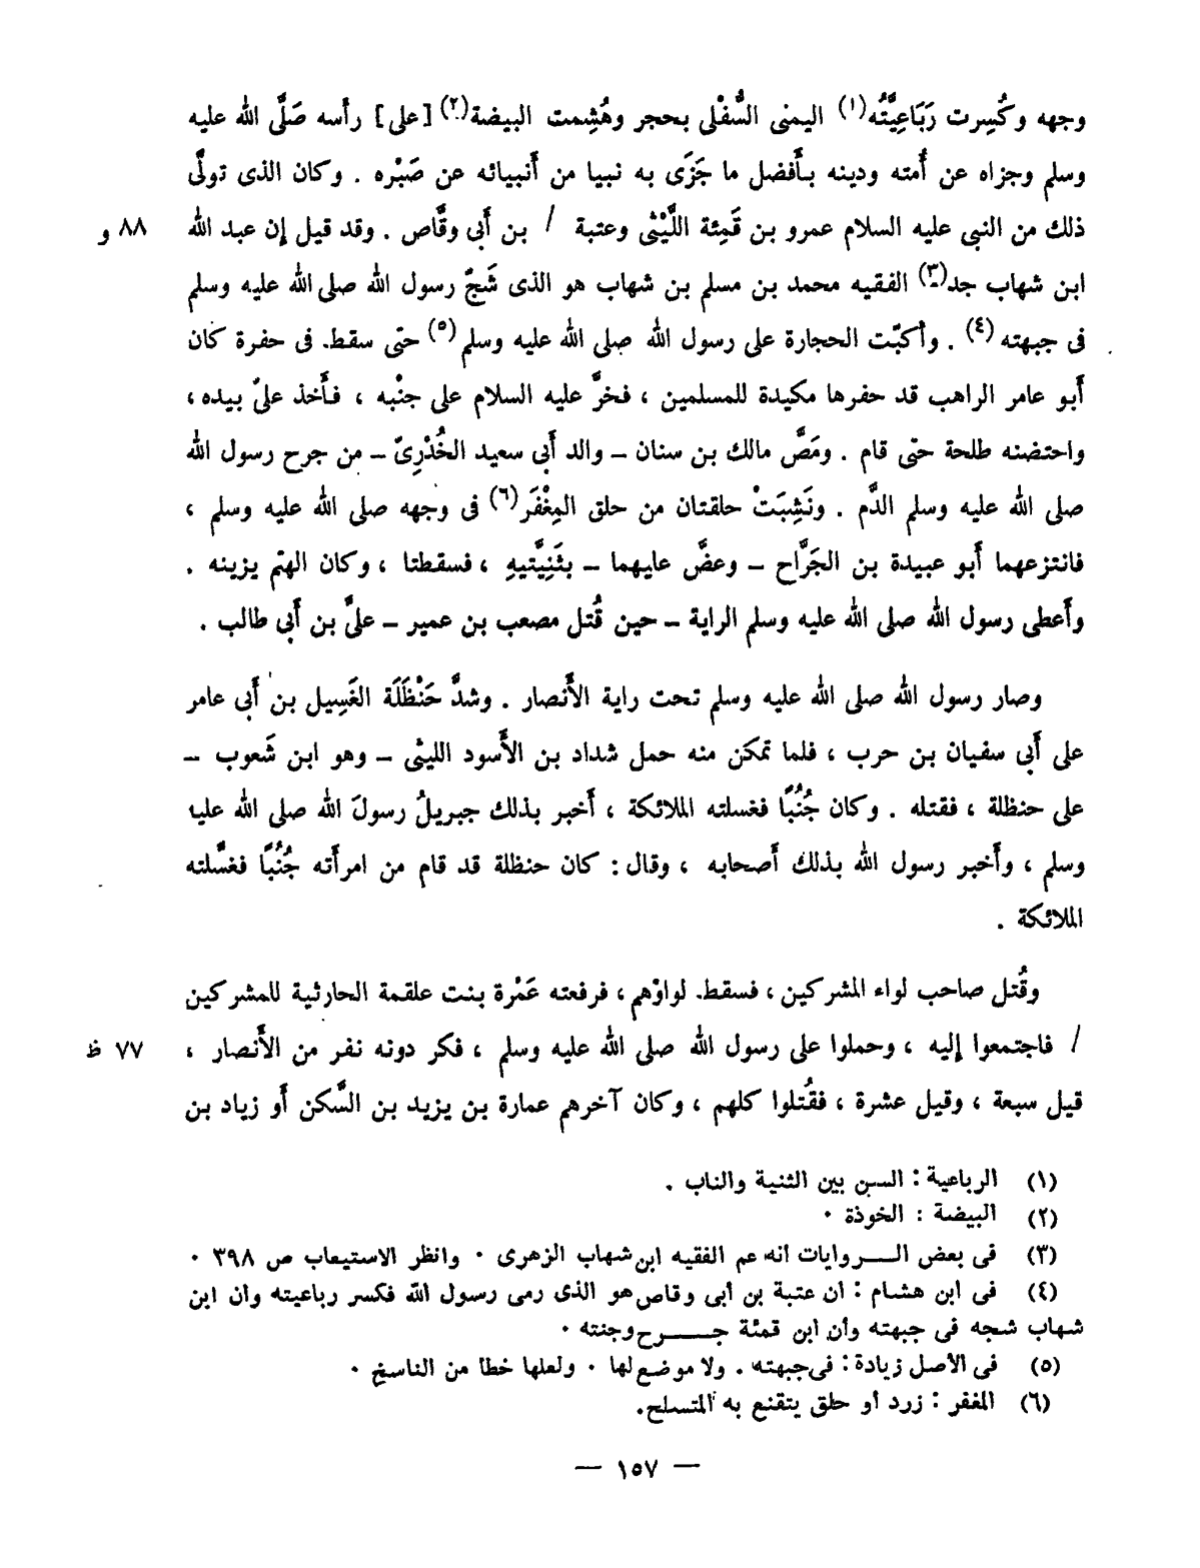 وجهه وكُسِرت رَبَاعِيَّتُه(١) اليمنى السُّفْلى بحجر وهُشِمت البيضة(٢) [على] رأسه صَلَّى الله عليه
وسلم وجزاه عن أُمته ودينه بأَفضل ما جَزَى به نبيا من أَنبيائه عن صَبْره . وكان الذى تولَّى
ذلك من النبى عليه السلام عمرو بن قَمِئة اللَّيْثى وعتبة / بن أَبى وقَّاص . وقد قيل إن عبد الله ٨٨ و
ابن شهاب جد(٣) الفقيه محمد بن مسلم بن شهاب هو الذى شَجّ رسول الله صلى الله عليه وسلم
فى جبهته (٤) . وأكبّت الحجارة على رسول الله صلى الله عليه وسلم(٥) حتى سقط. فى حفرة كان
أَبو عامر الراهب قد حفرها مكيدة للمسلمين ، فخرَّ عليه السلام على جنْبه ، فأَخذ علىّ بيده ،
واحتضنه طلحة حتى قام . ومَصَّ مالك بن سنان – والد أَبى سعيد الخُدْرِىّ – من جرح رسول الله
صلى الله عليه وسلم الدَّم . ونَشِبَتْ حلقتان من حلق المِغْفَر(٦) فى وجهه صلى الله عليه وسلم ،
فانتزعهما أَبو عبيدة بن الجَرَّاح – وعضَّ عليهما – بثَنِيَّتيهِ ، فسقطتا ، وكان الهتم يزينه .
وأَعطى رسول الله صلى الله عليه وسلم الراية – حين قُتل مصعب بن عمير – علىَّ بن أَبى طالب .
وصار رسول الله صلى الله عليه وسلم تحت راية الأَنصار . وشدَّ حَنْظَلَة الغَسِيل بن أَبى عامر
على أَبى سفيان بن حرب ، فلما تمكن منه حمل شداد بن الأَسود الليثى – وهو ابن شَعوب –
على حنظلة ، فقتله . وكان جُنُبًا فغسلته الملائكة ، أَخبر بذلك جبريلُ رسولَ الله صلى الله عليه
وسلم ، وأَخبر رسول الله بذلك أَصحابه ، وقال : كان حنظلة قد قام من امرأَته جُنُبًا فغسَّلته
الملائكة .
وقُتل صاحب لواء المشركين ، فسقط. لواؤهم ، فرفعته عَمْرة بنت علقمة الحارثية للمشركين
/ فاجتمعوا إليه ، وحملوا على رسول الله صلى الله عليه وسلم ، فكر دونه نفر من الأَنصار ، ٧٧ ظ
قيل سبعة ، وقيل عشرة ، فقُتلوا كلهم ، وكان آخرهم عمارة بن يزيد بن السَّكن أَو زياد بن
(١) الرباعية : السن بين الثنية والناب .
(٢) البيضة : الخوذة .
(٣) فى بعض الروايات أنه عم الفقيه ابن شهاب الزهرى . وانظر الاستيعاب ص ٣٩٨ .
(٤) فى ابن هشام : ان عتبة بن أبى وقاص هو الذى رمى رسول الله فكسر رباعيته وان ابن
شهاب شجه فى جبهته وأن ابن قمئة جرح وجنته .
(٥) فى الأصل زيادة : فى جبهته . ولا موضع لها . ولعلها خطا من الناسخ .
(٦) المغفر : زرد او حلق يتقنع به المتسلح.
— ١٥٧ —